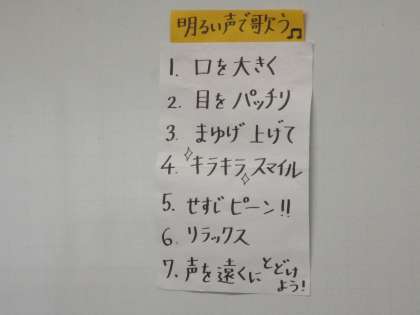 明るい声で歌う♫
1. 口を大きく
2. 目をパッチリ
3. まゆげ上げて
4. キラキラスマイル
5. せすじピーン!!
6. リラックス
7. 声を遠くにとどけよう!